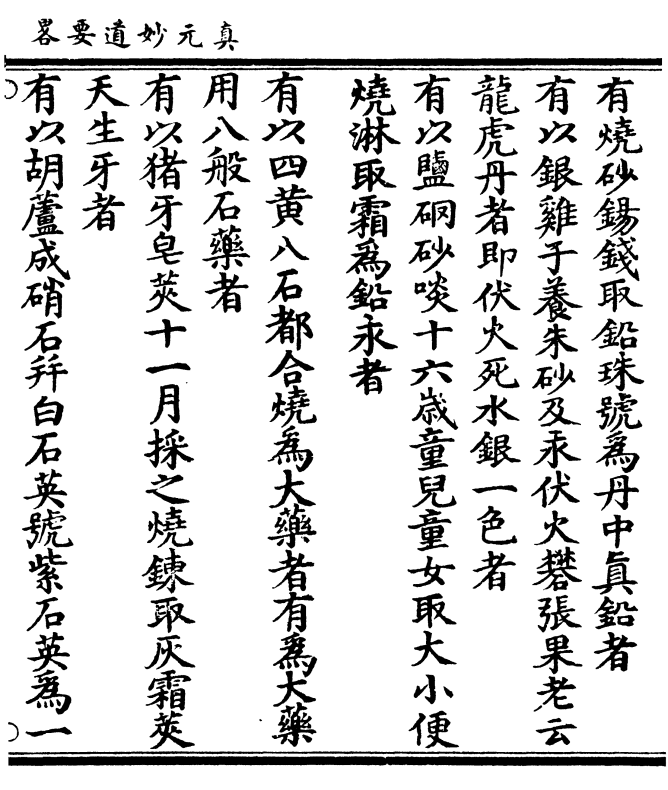 真元妙道要畧
有燒砂鍚錢取鉛珠號爲丹中眞鉛者
有以銀雞子養朱砂及汞伏火礬張果老云
龍虎丹者即伏火死水銀一色者
有以鹽硇砂啖十六歲童兒童女取大小便
燒淋取霜爲鉛汞者
有以四黄八石都合燒爲大藥者有爲大藥
用八般石藥者
有以猪牙皂莢十一月採之燒鍊取灰霜莢
天生牙者
有以胡蘆成硝石并白石英號紫石英爲一